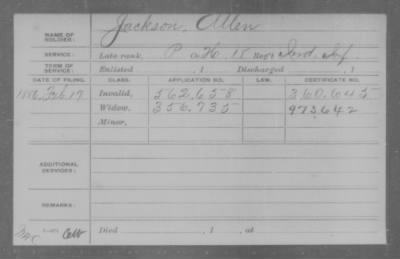 NAME OF SOLDIER: Jackson, Allen
SERVICE: Late rank, P Co. H, 18 Reg't Ind. Inf.
TERM OF SERVICE: Enlisted , 1 Discharged , 1
DATE OF FILING. CLASS. APPLICATION NO. LAW. CERTIFICATE NO.
1886, Feb. 17 Invalid, 562.658 360.645
Widow, 356.735 973.642
Minor,
ADDITIONAL SERVICES:
REMARKS:
Died , 1 , at